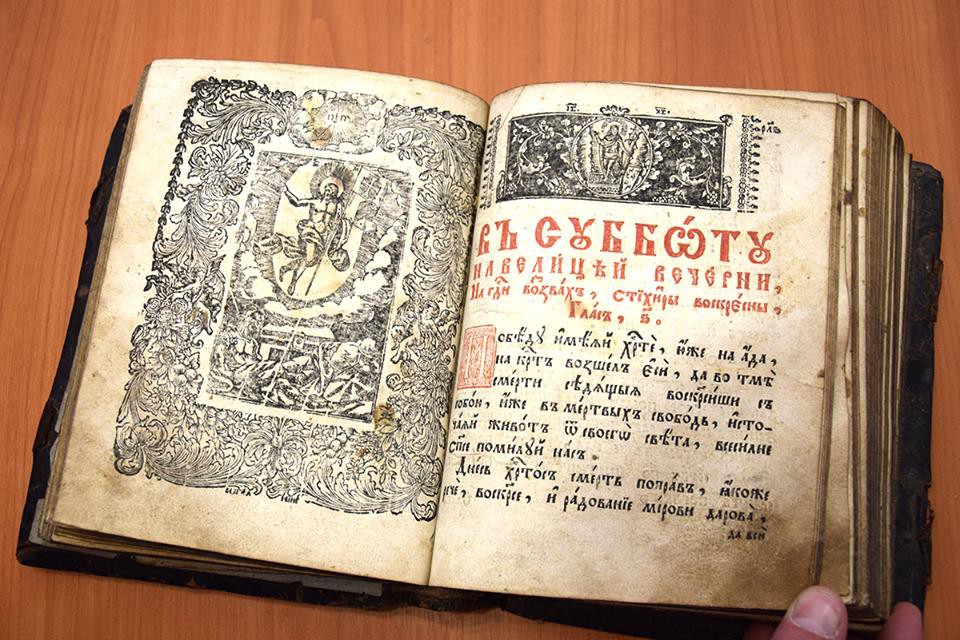 ВЪ СУББѠ́ТУ
НА ВЕЛИ́ЦѢЙ ВЕЧЕ́РНИ,
На гдⷭ҇и воззва́хъ, стїхи̑ры воскре́сны,
Гла́съ, в҃.
Побѣ́ду и҆мѣ́ѧй хрⷭ҇тѐ, ꙗ҆́же на а҆́да,
на крⷭ҇тъ возше́лъ є҆сѝ, да во тмѣ̀
сме́рти сѣдѧ́щыѧ воскреси́ши съ
собо́ю, и҆́же въ ме́ртвыхъ свобо́дь, и҆сто-
ча́ѧй живо́тъ ѿ своегѡ̀ свѣ́та, всеси́лне
сп҃се поми́луй на́съ.
Дне́сь хрⷭ҇то́съ сме́рть попра́въ, ꙗ҆́коже
речѐ, воскре́се, и҆ ра́дованїе мі́рови дарова̀,
да всѝ